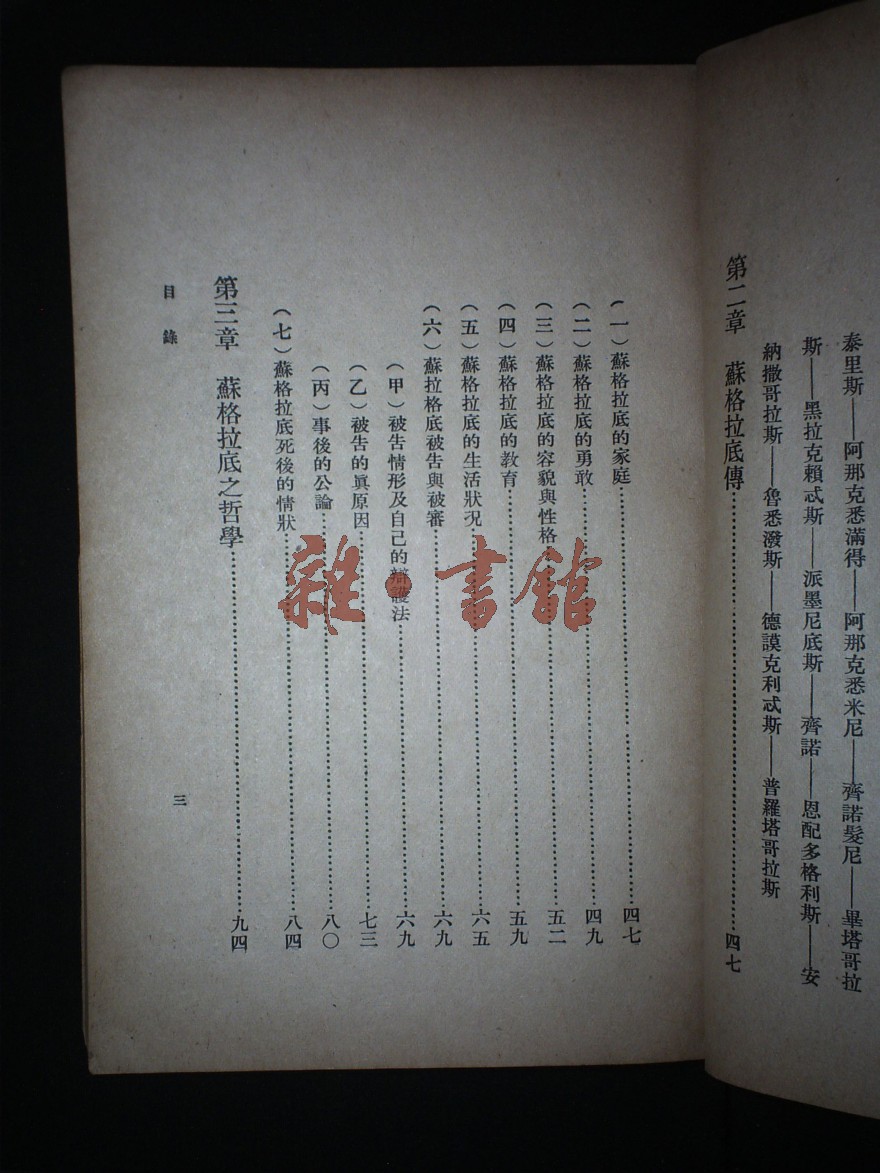 泰里斯——阿那克悉滿得——阿那克悉米尼——齊諾髮尼——畢塔哥拉
斯——黑拉克賴忒斯——派墨尼底斯——齊諾——恩配多格利斯——安
納撒哥拉斯——魯悉潑斯——德謨克利忒斯——普羅塔哥拉斯
第二章 蘇格拉底傳……………………四七
(一)蘇格拉底的家庭……………………四七
(二)蘇格拉底的勇敢……………………四九
(三)蘇格拉底的容貌與性格……………………五二
(四)蘇格拉底的教育……………………五九
(五)蘇格拉底的生活狀況……………………六五
(六)蘇拉格底被告與被審……………………六九
(甲)被告情形及自己的辯護法……………………六九
(乙)被告的眞原因……………………七三
(丙)事後的公論……………………八〇
(七)蘇格拉底死後的情狀……………………八四
第三章 蘇格拉底之哲學……………………九四
目錄
三
雜·書館